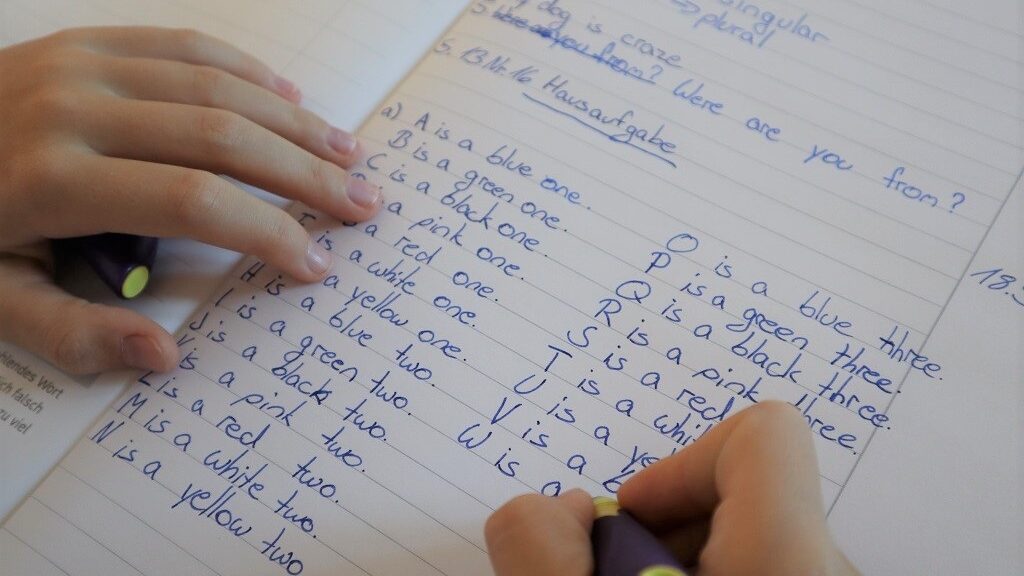 singular
=> plural
dog is craze
you from? Were are you from?
S. 13 Nr. 16 Hausaufgabe
a) A is a blue one.
B is a green one.
C is a black one.
a pink one.
a red one.
is a white one.
a yellow one.
H is a blue two.
I is a green two.
J is a black two.
is a pink two.
L is a red two.
M is a white two.
N is a yellow two
O is a blue three.
P is a green three.
Q is a black three.
R is a pink three.
S is a red
T is a whi
U is a ye
V is a
W is a
18.
hlendes Wort
ch falsch
zu viel